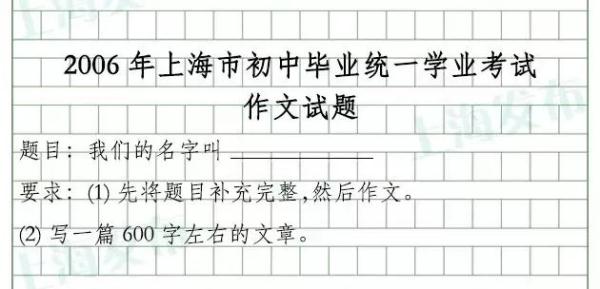 2006 年上海市初中毕业统一学业考试
作文试题
题目：我们的名字叫 ____________
要求：(1) 先将题目补充完整，然后作文。
(2) 写一篇 600 字左右的文章。
上海发布
上海发布